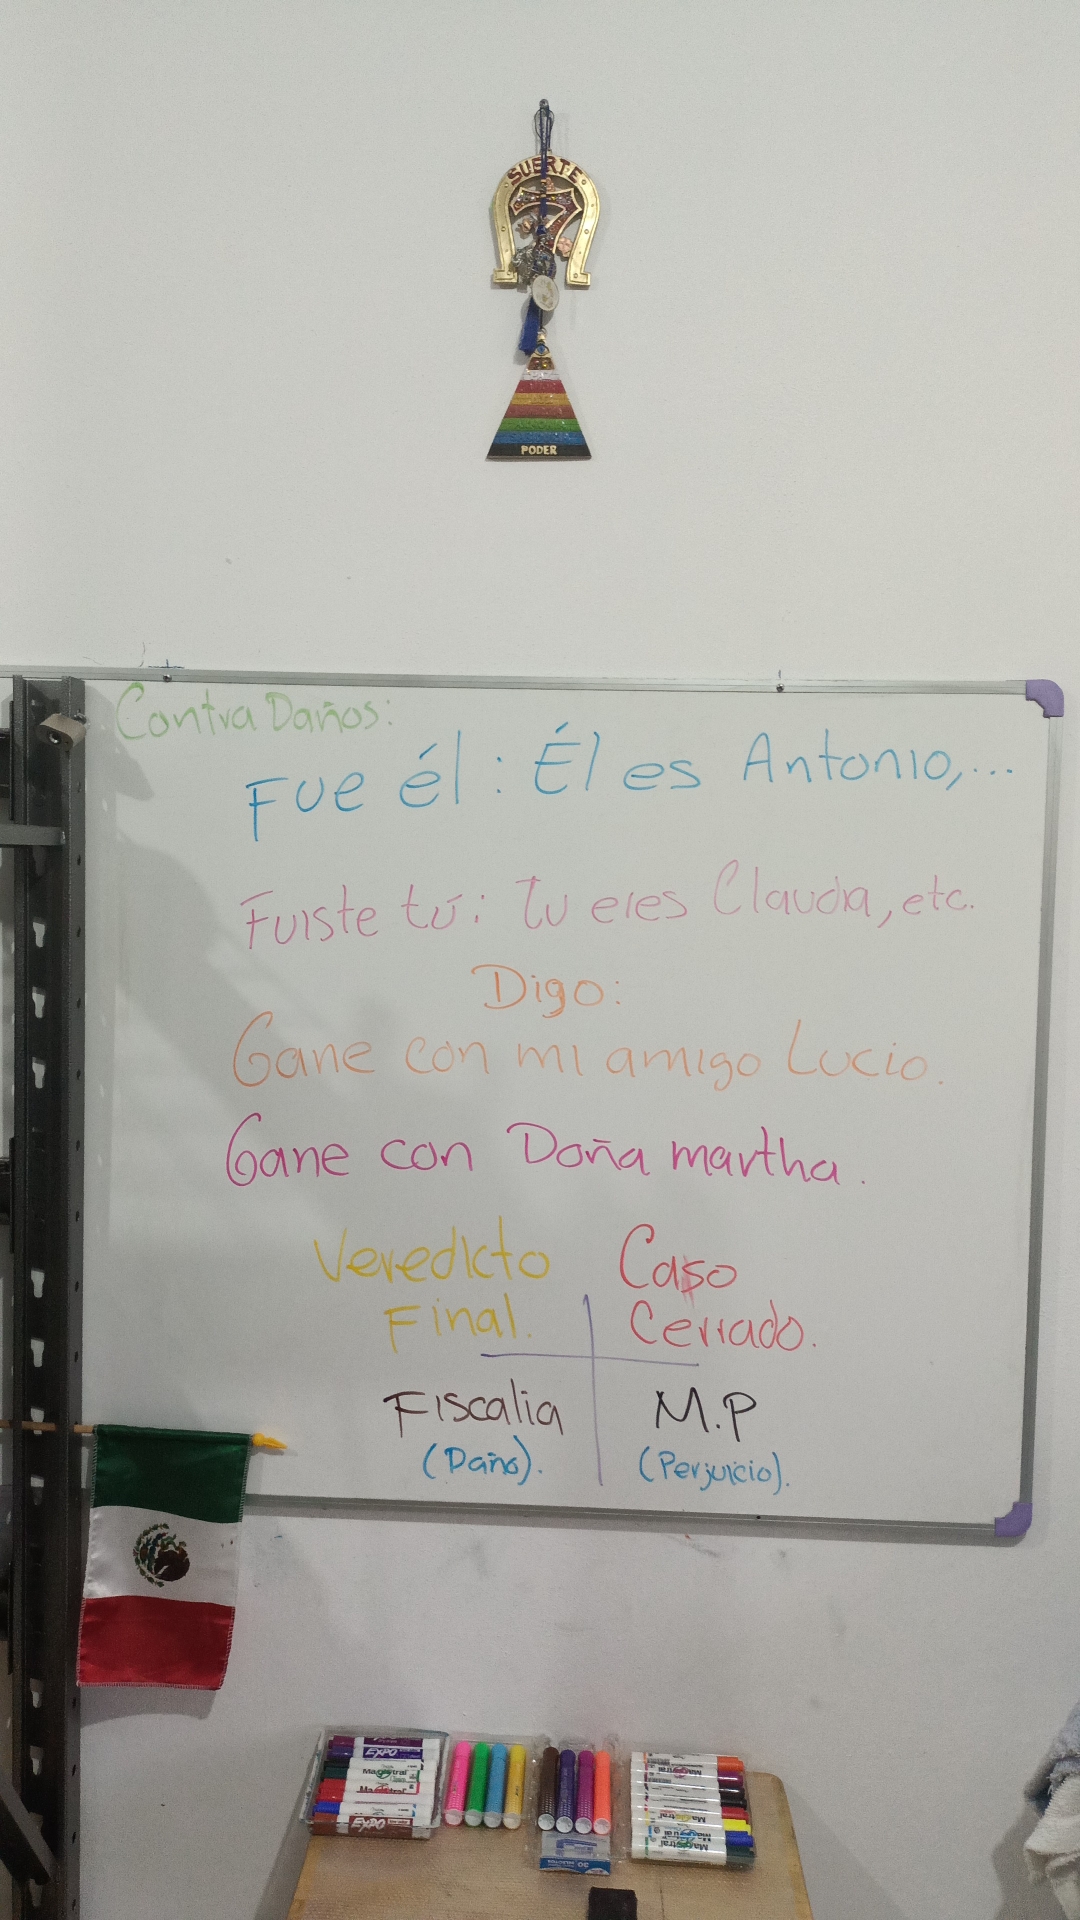 SUERTE
7
PODER
Contra Daños:
Fue él : Él es Antonio,...
Fuiste tú : Tu eres Claudia, etc.
Digo:
Gane con mi amigo Lucio.
Gane con Doña martha.
Veredicto Caso
Final. Cerrado.
Fiscalia M.P
(Daño). (Perjuicio).
EXPO
Magistral
Magistral
EXPO
Magistral
Magistral
Magistral
Magistral